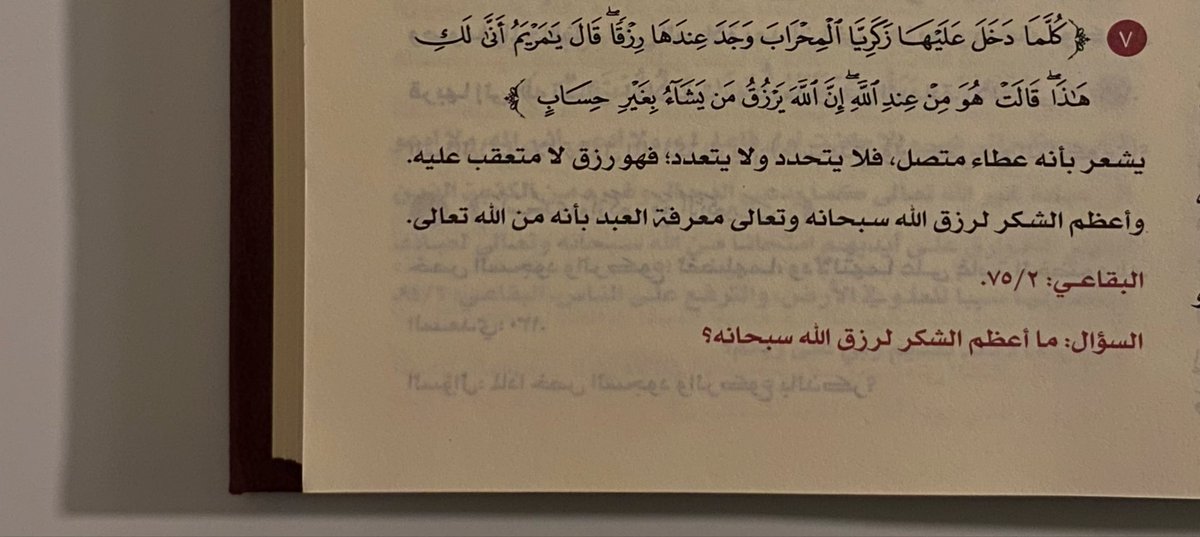 ٧ ﴿ كُلَّمَا دَخَلَ عَلَيْهَا زَكَرِيَّا ٱلْمِحْرَابَ وَجَدَ عِندَهَا رِزْقًا ۖ قَالَ يَٰمَرْيَمُ أَنَّىٰ لَكِ
هَٰذَا ۖ قَالَتْ هُوَ مِنْ عِندِ ٱللَّهِ ۖ إِنَّ ٱللَّهَ يَرْزُقُ مَن يَشَآءُ بِغَيْرِ حِسَابٍ ﴾
يشعر بأنه عطاء متصل، فلا يتحدد ولا يتعدد؛ فهو رزق لا متعقب عليه.
وأعظم الشكر لرزق الله سبحانه وتعالى معرفة العبد بأنه من الله تعالى.
البقاعي: ٧٥/٢.
السؤال: ما أعظم الشكر لرزق الله سبحانه؟